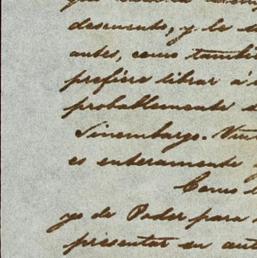 descuento, y le
antes, como tambié
prefiére librar á
probablemente
Sinembargo.
es enteramente
Como
yo de Poder para
presentar su aut